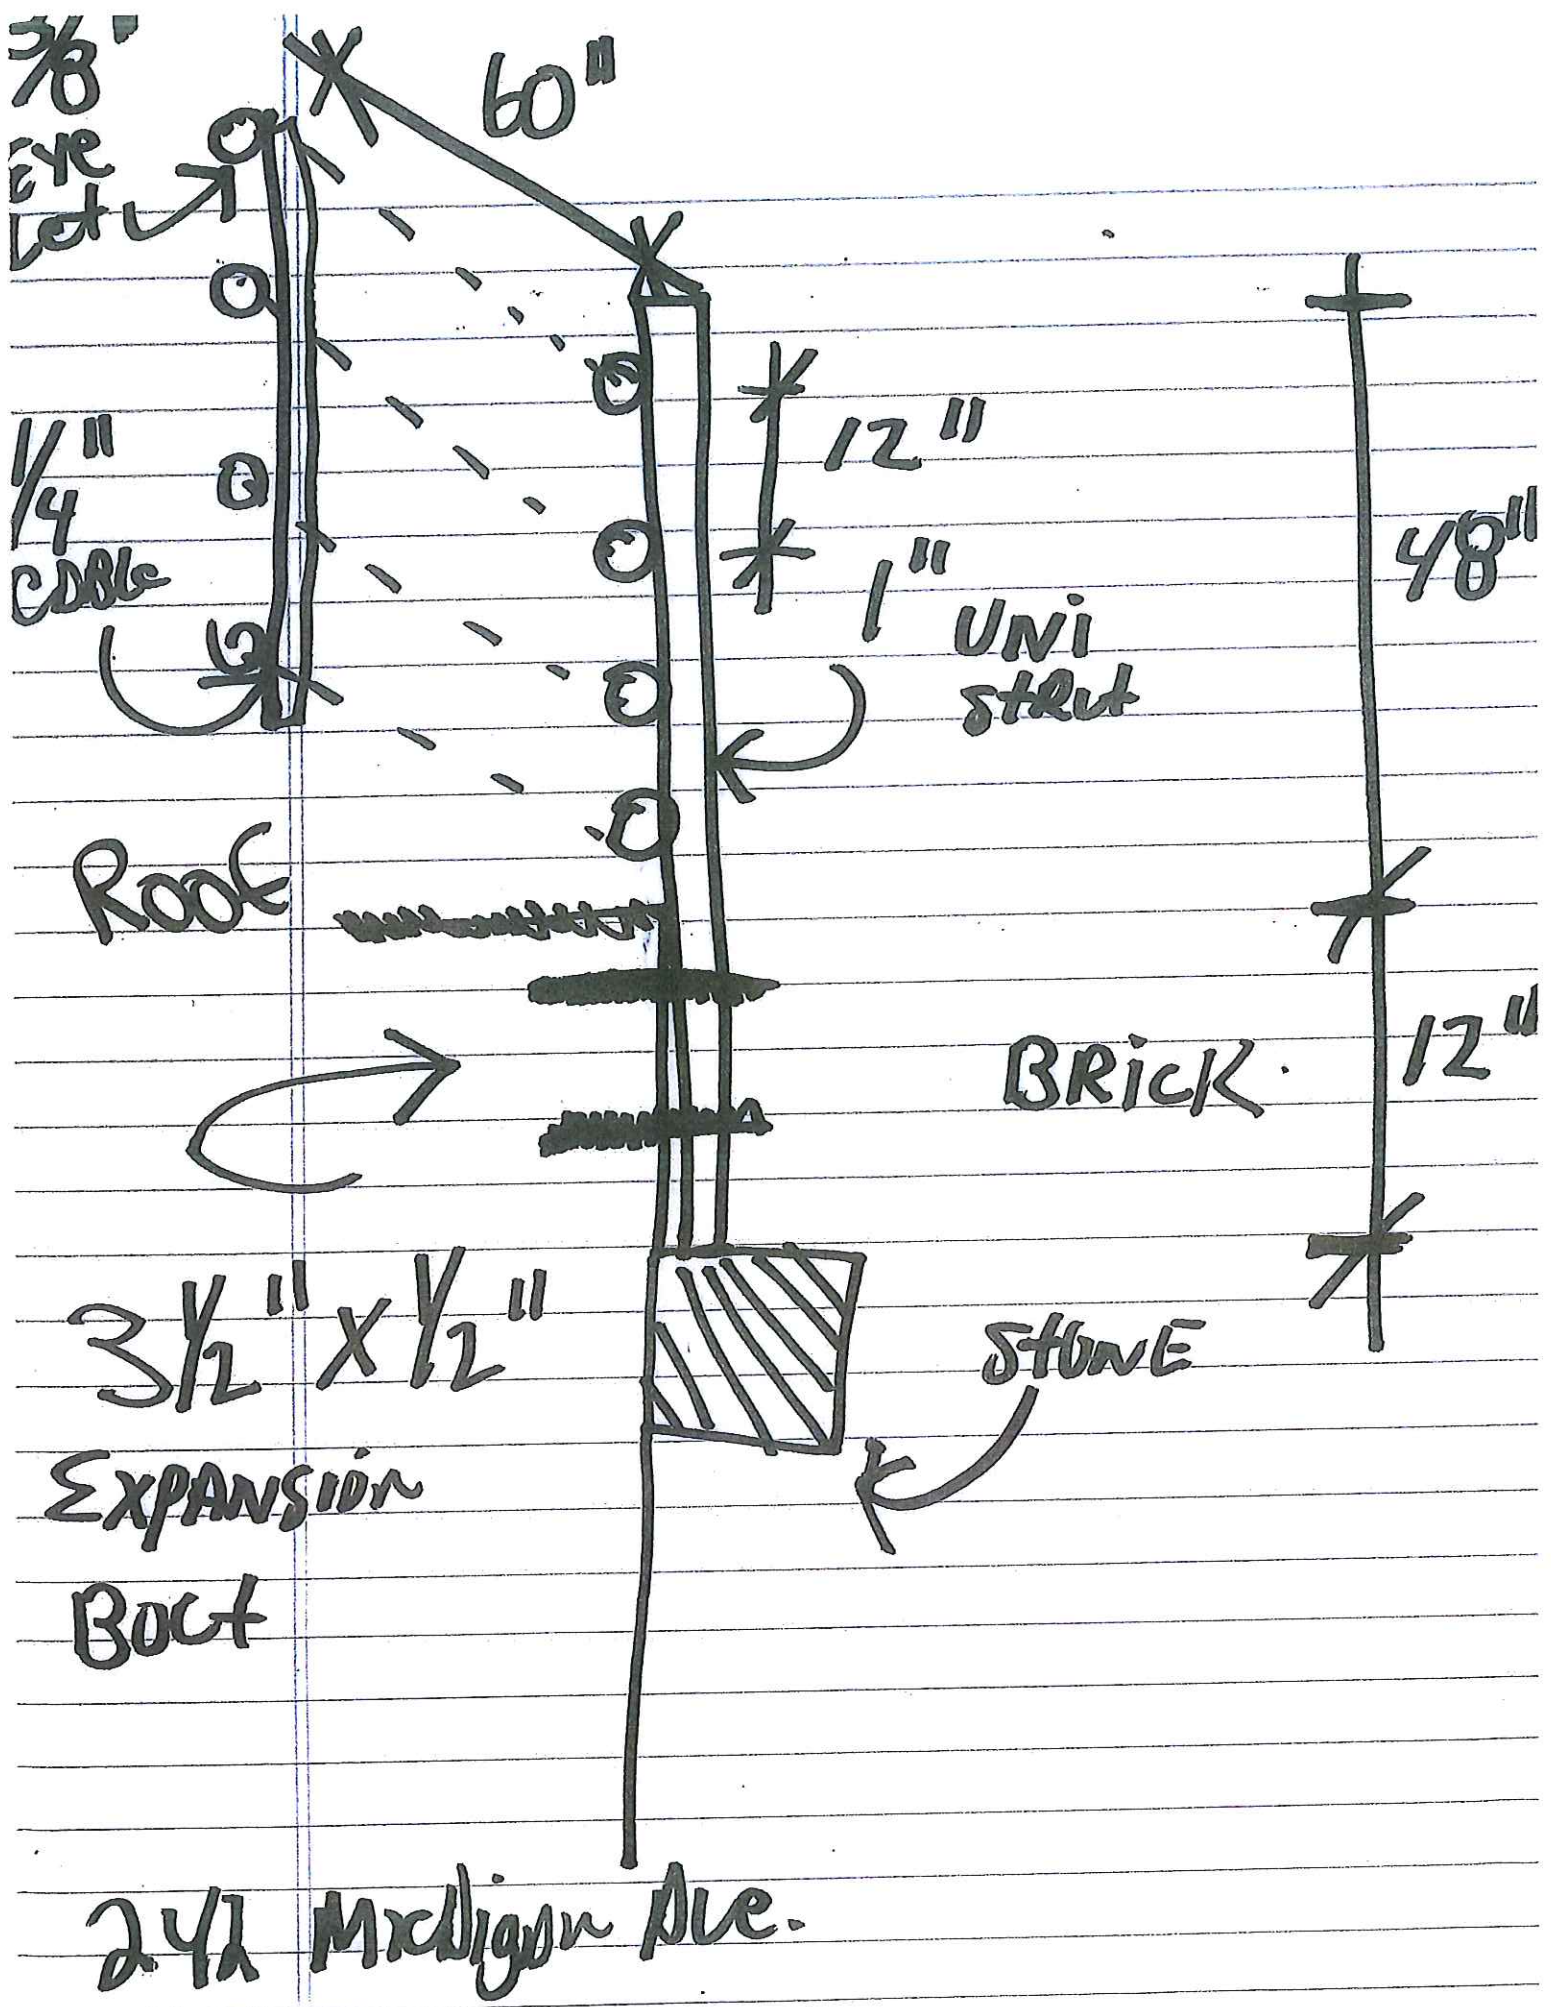 3/8"
EYe
Let
60"
12"
1/4"
CABLe
1"
UNi
stRut
48"
ROOF
BRiCK
12"
3 1/2" X 1/2"
StONE
EXPANSiON
BOLt
242 Michigan Ave.